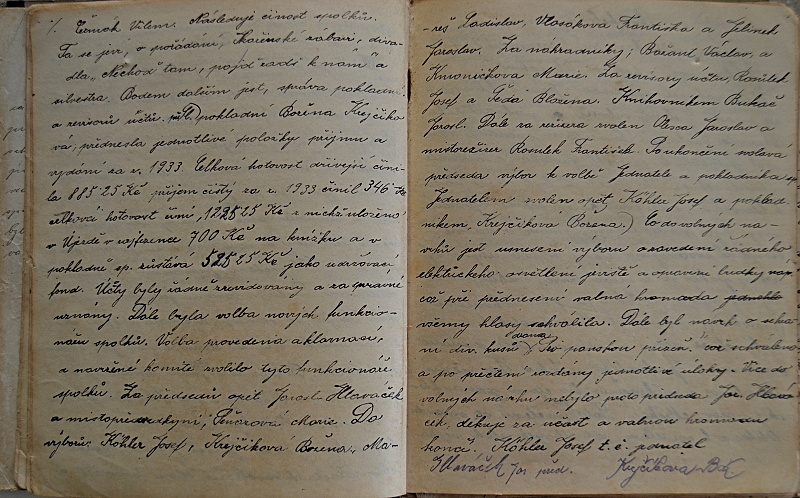 Čermák Vilém. Následuje činost spolků.
Ta se jeví, o pořádání, Kačenské zábavě, diva-
dla „Nechoď tam, pojď radši k nám" a
silvestra. Bodem dalším jest, správa pokladní
a revisorů účtů. pokladní Božena Krejčíko
vá, přednesla jednotlivé položky příjmu a
vydání za r. 1933. Celková hotovost dřívější čini-
la 885 25 Kč příjem čistý za r. 1933 činil 346 Kč
celková hotovost činí, 1225 25 Kč z nichž uloženo
v Újezdě v 700 Kč na knížku a v
pokladně sp. zůstává 525 25 Kč jako udržovací
fond. Účty byly řádně zrevidovány a za správné
uznány. Dále byla volba nových funkcio-
nářů spolků. Volba provedena aklamací,
a navržené komité zvolilo tyto funkcionáře
spolků. Za předsedu opět Jarosl. Hlaváček
a místopředsedkyní, Marie. Do
výboru: Köhler Josef, Krejčíková Božena, Ma-
-reš Ladislav, Vlasáková Františka a Jelínek
Jaroslav. Za náhradníky; Václav, a
Marie. Za revisory účtů, Rosulek
Josef a Blažena. Knihovníkem Bukač
Jarosl. Dále za režiséra zvolen Jaroslav a
místorežisér Rosulek František. Po ukončení svolává
předseda výbor k volbě jednatele a pokladníka
Jednatelem zvolen opět Köhler Josef a poklad-
níkem, Krejčíková Božena. Do volných ná-
vrhů jest usnesení výboru o zavedení řádného
elektrického osvětlení jeviště a opravení budky
což při přednesení valná hromada
všemy hlasy schválila. Dále byl návrh o sehrá-
ní div. kusů panskou přízeň." což schváleno
a po přečtení rozdány jednotlivé úlohy. Více do
volných návrhů nebylo proto předseda Jar. Hlavá
ček, děkuje za účast a valnou hromadu
končí. Köhler Josef t. č. jednatel
Hlaváček Jar. před. Krejčíková Bož